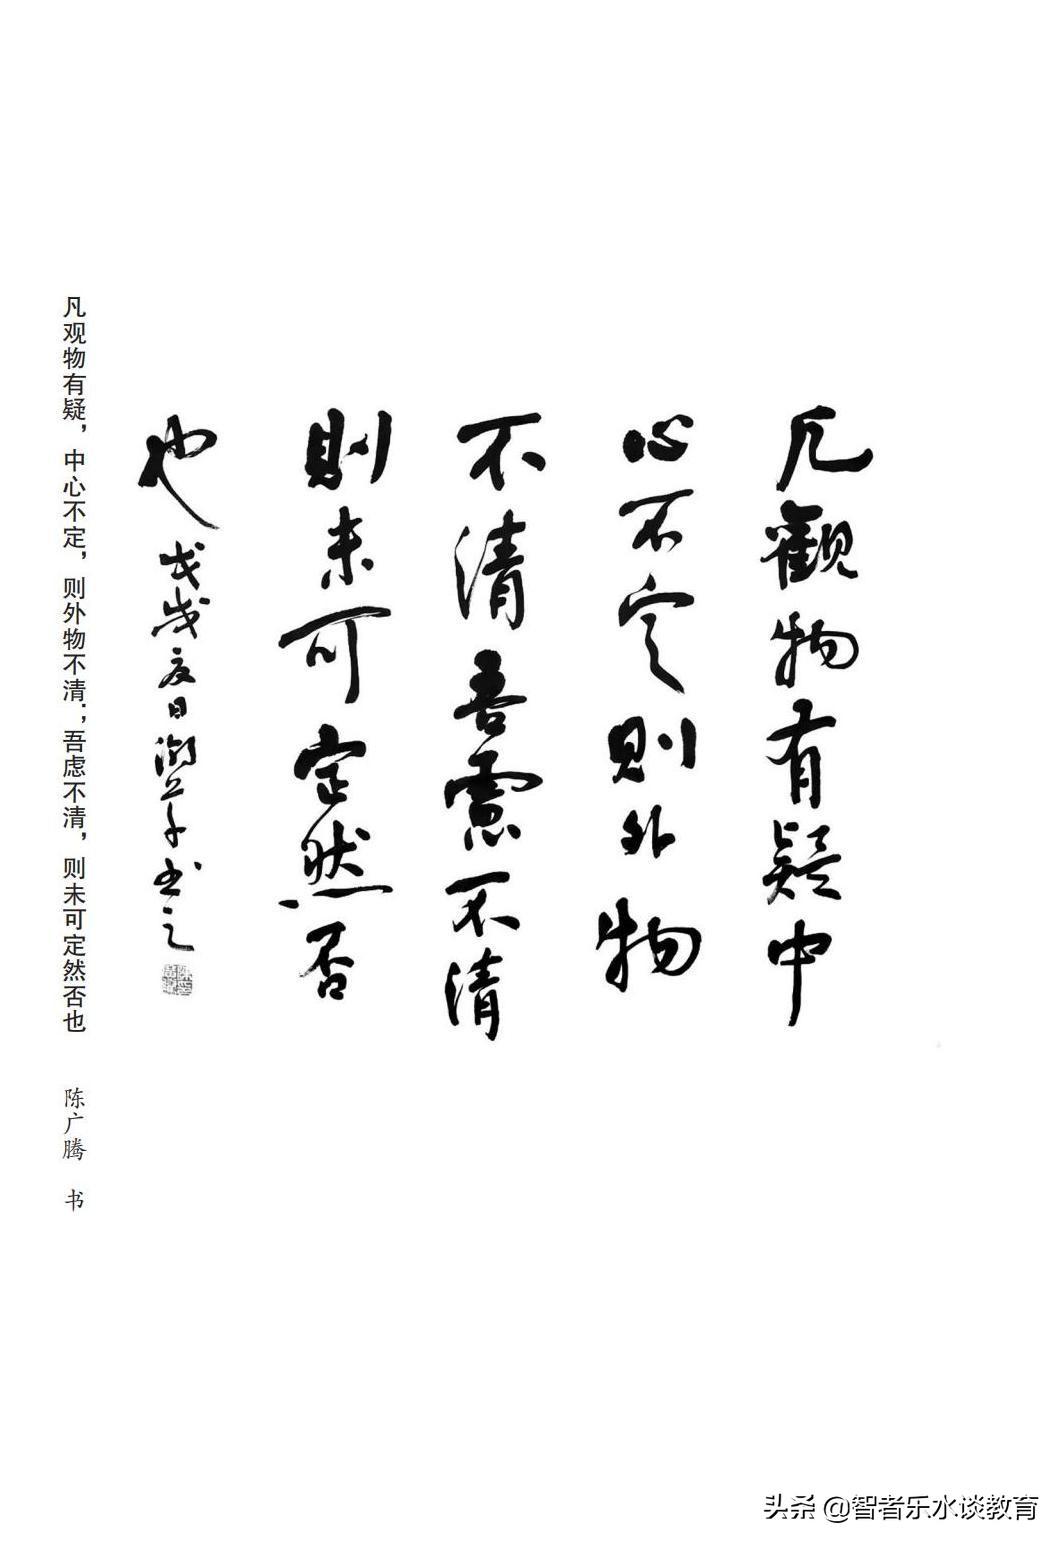 凡觀物有疑中
心不定則外物
不清吾慮不清
則未可定然否
也
戊戌夏日 書之
凡观物有疑，中心不定，则外物不清；吾虑不清，则未可定然否也
陈广腾 书
头条 @智者乐水谈教育